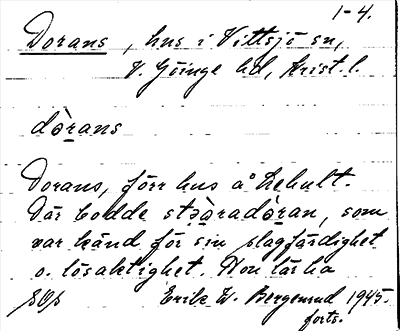 1-4.
Dorans, hus i Vittsjö sn,
V. Göinge hd, Krist. l.
dò̱rans
Dorans, förr hus å Lehult.
Där bodde stə̀a̱radò̱ran, som
var känd för sin slagfärdighet
o. lösaktighet. Hon lär ha
Erik W. Bergenrud 1945.
forts.